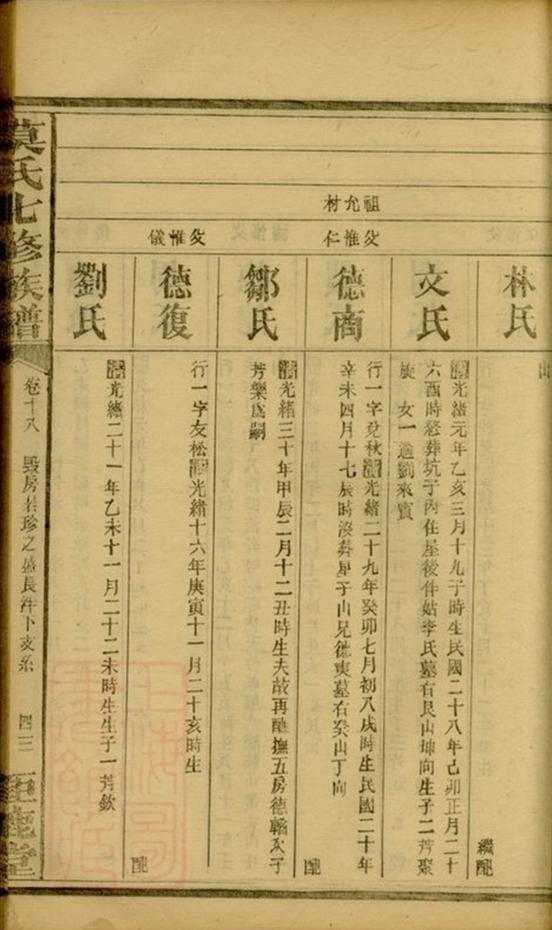 林氏
繼配
文氏
清光緒元年乙亥三月十九子時生民國二十八年己卯正月二十
六酉時葬坑子內住屋後伴姑李氏墓右艮山坤向生子二芳聚
女一適劉來賓
祖允材
父惟仁
德商
行一字兌秋清光緒二十九年癸卯七月初八戌時生民國二十年
辛未四月十七辰時沒葬犀子山兄德東墓右癸山丁向
配
鄒氏
清光緒三十年甲辰二月十二丑時生夫故再醮撫五房德輶次子
芳樂為嗣
父惟儀
德復
行一字友松清光緒十六年庚寅十一月二十亥時生
配
劉氏
清光緒二十一年乙未十一月二十二未時生生子一芳欽
莫氏七修族譜
卷十八
房若珍之盛長洋下支系
四三
鉅鹿堂